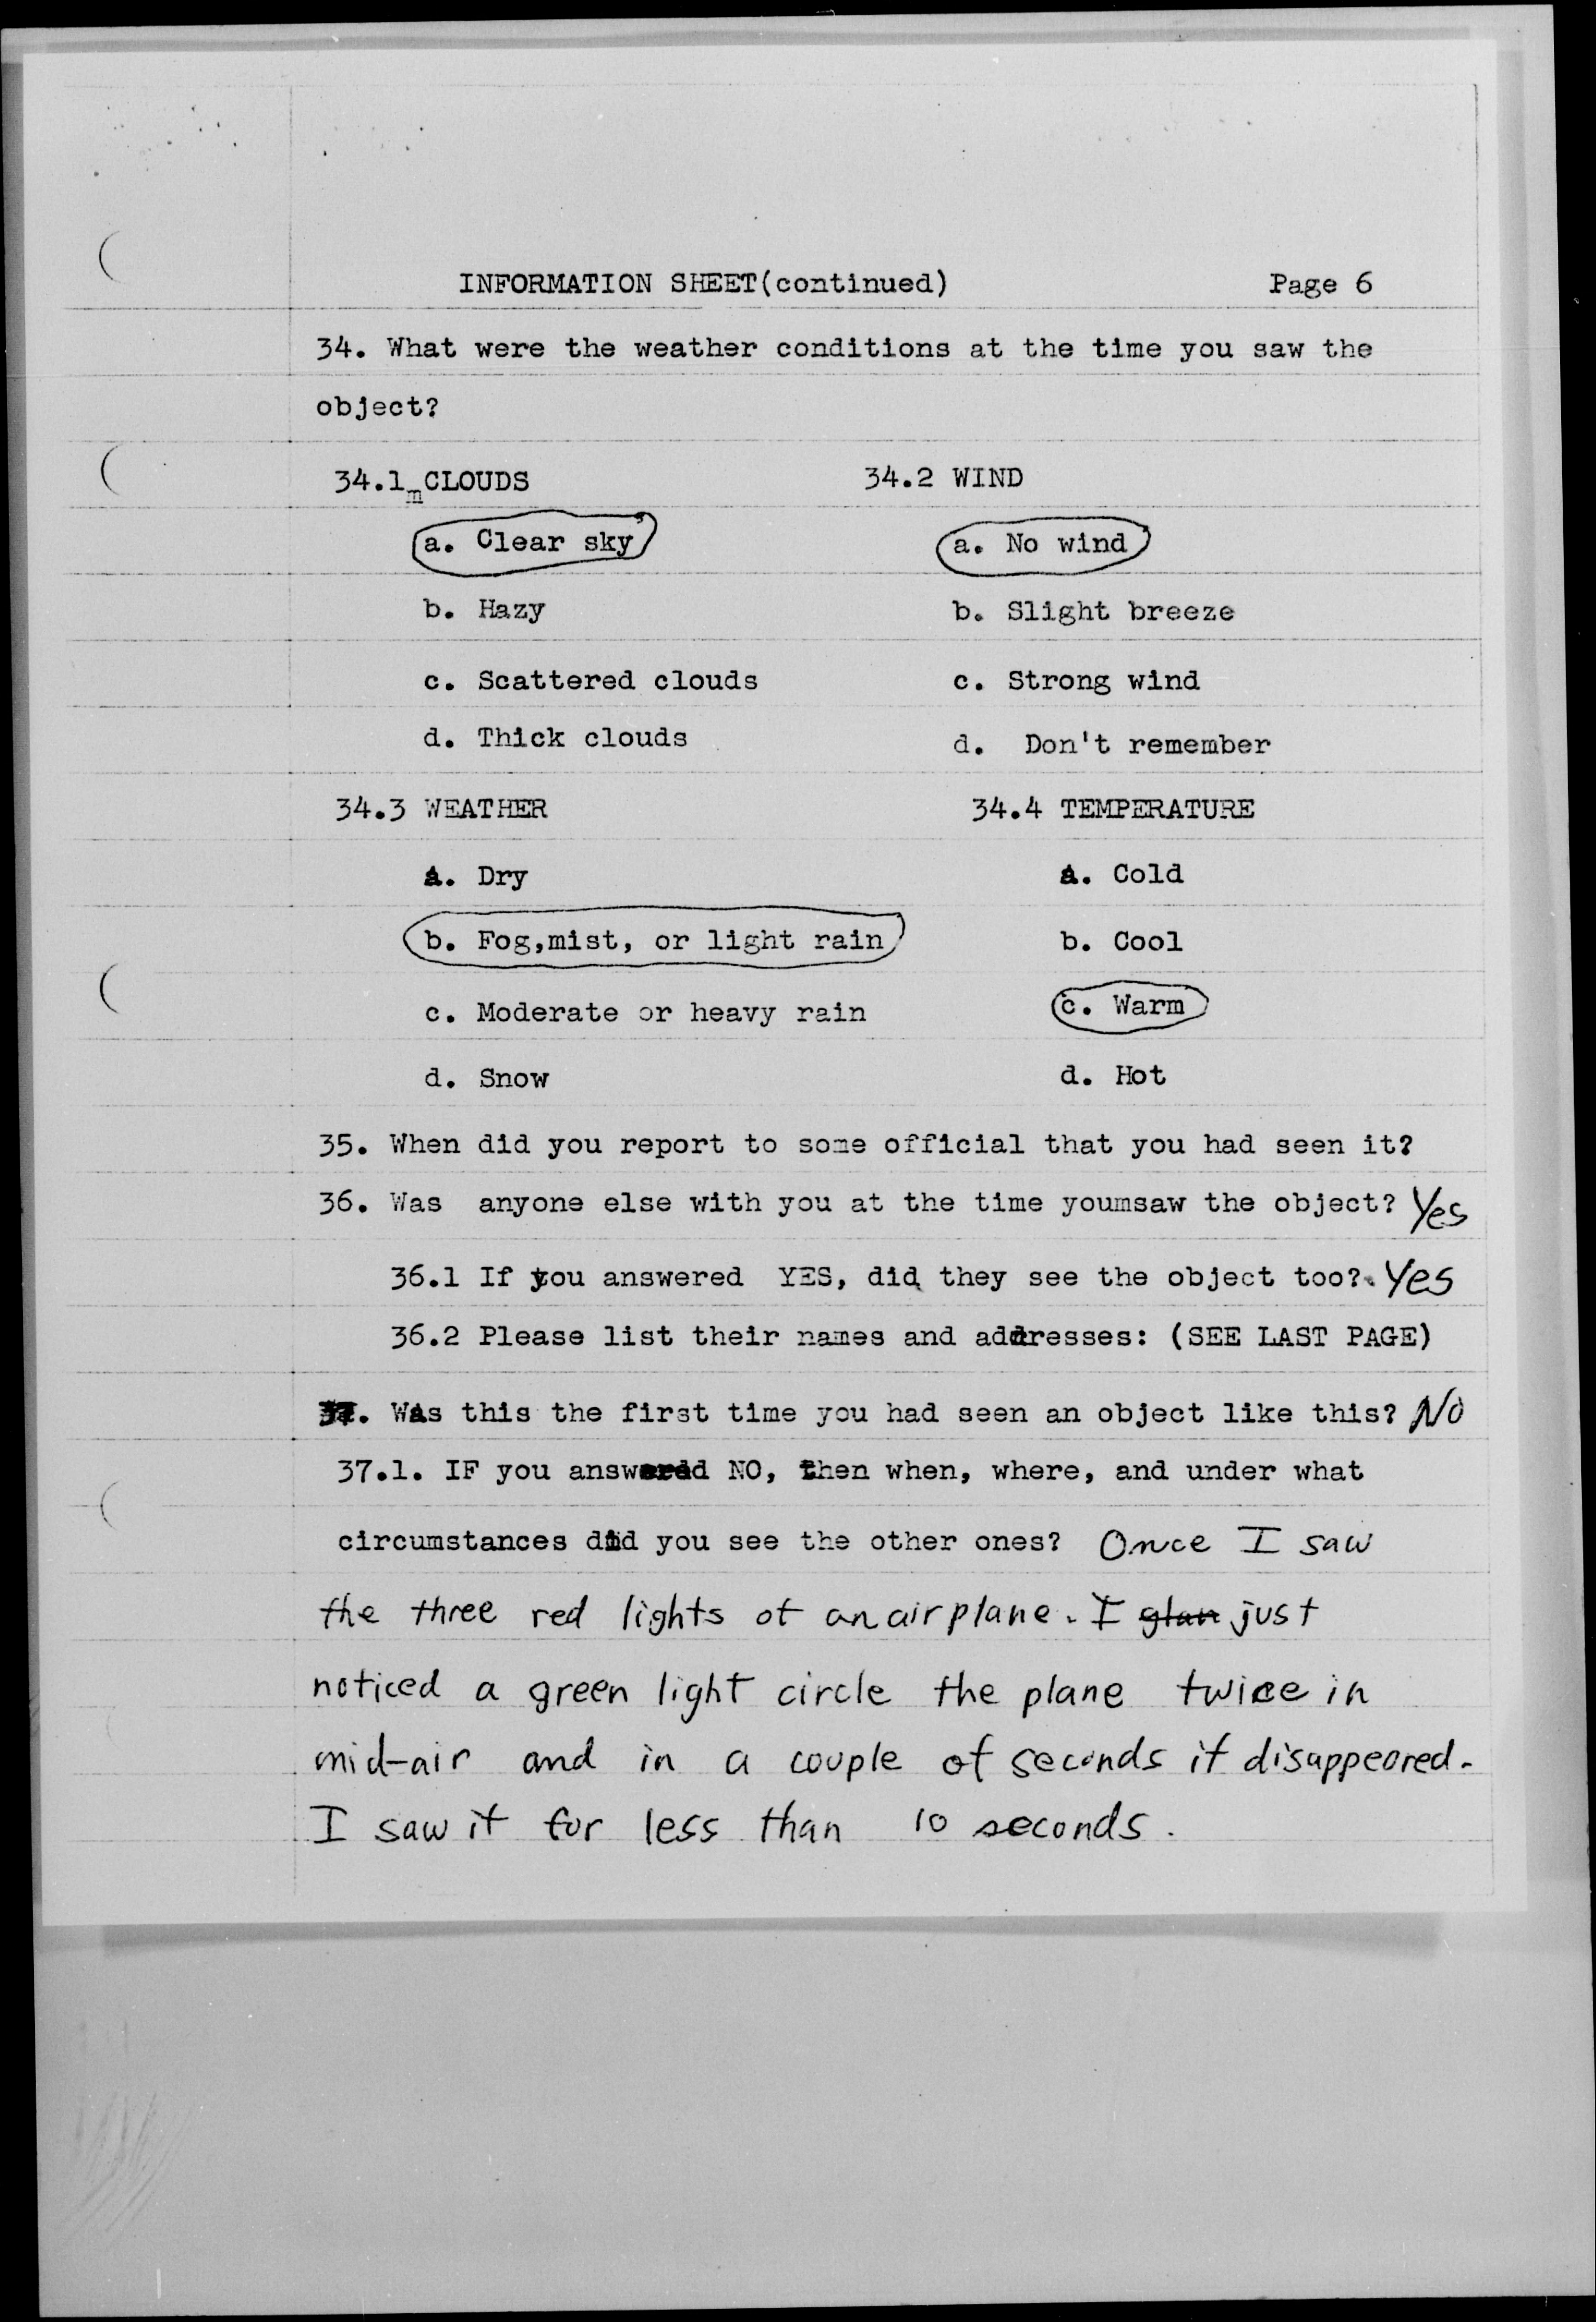 INFORMATION SHEET(continued) Page 6
34. What were the weather conditions at the time you saw the
object?
34.1mCLOUDS 34.2 WIND
a. Clear sky a. No wind
b. Hazy b. Slight breeze
c. Scattered clouds c. Strong wind
d. Thick clouds d. Don't remember
34.3 WEATHER 34.4 TEMPERATURE
a. Dry a. Cold
b. Fog,mist, or light rain b. Cool
c. Moderate or heavy rain c. Warm
d. Snow d. Hot
35. When did you report to some official that you had seen it?
36. Was anyone else with you at the time youmsaw the object? Yes
36.1 If you answered YES, did they see the object too? Yes
36.2 Please list their names and addresses: (SEE LAST PAGE)
37. Was this the first time you had seen an object like this? No
37.1. IF you answered NO, then when, where, and under what
circumstances did you see the other ones? Once I saw
the three red lights of an airplane. I glan just
noticed a green light circle the plane twice in
mid-air and in a couple of seconds it disappeared.
I saw it for less than 10 seconds.